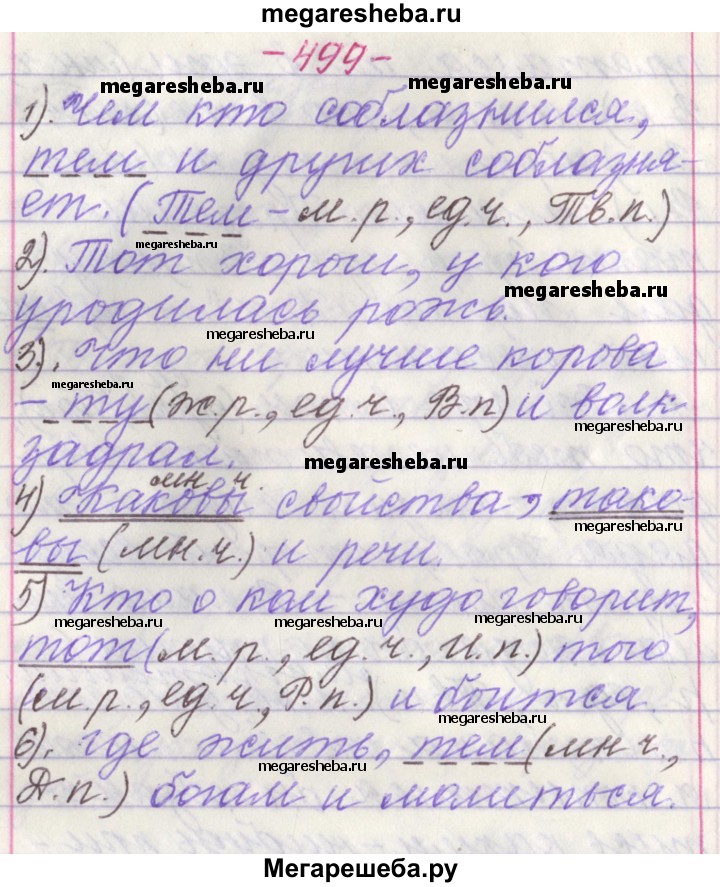 megaresheba.ru
- 499 -
megaresheba.ru
megaresheba.ru
1). Чем кто соблазнился,
тем и других соблазня-
ет. (Тем - м.р., ед.ч., Тв.п.)
megaresheba.ru
2). Тот хорош, у кого
megaresheba.ru
уродилась рожь.
megaresheba.ru
3). Что ни лучше корова
megaresheba.ru
- ту (ж.р., ед.ч., В.п) и волк
megaresheba.ru
задрал.
megaresheba.ru
мн ч.
4) Каковы свойства, тако-
megaresheba.ru
вы (мн.ч.) и речи.
5) Кто о ком худо говорит,
megaresheba.ru
megaresheba.ru
megaresheba.ru
тот (м.р., ед.ч., И.п.) того
(м.р., ед.ч., Р.п.) и боится.
megaresheba.ru
6). где жить, тем (мн ч.,
megaresheba.ru
megaresheba.ru
Д.п.) богам и молиться.
Мегарешеба.ру